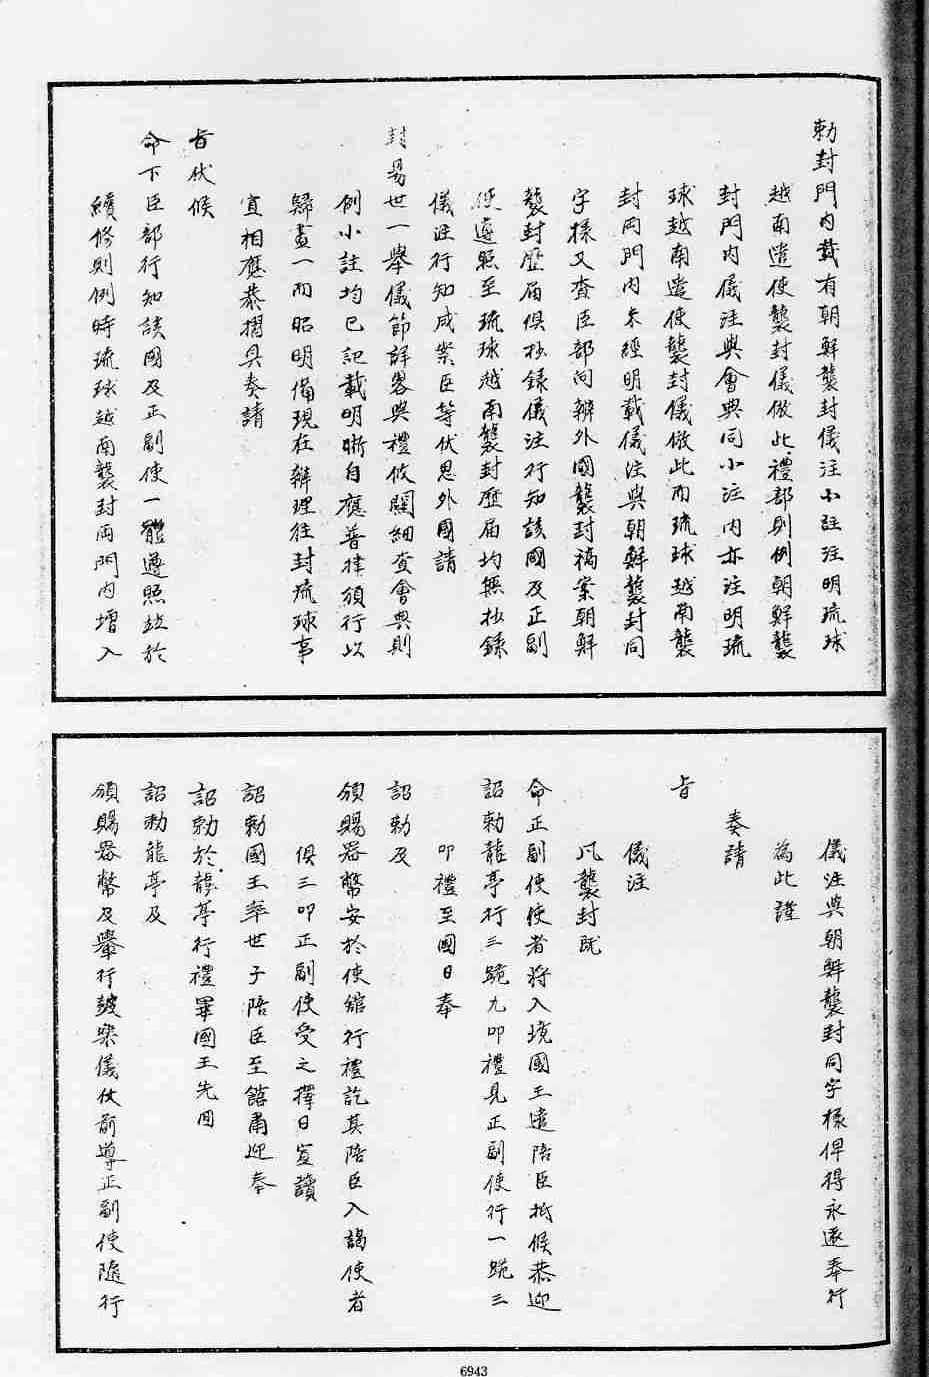 勅封門内載有朝鮮襲封儀注小註注明琉球
越南遣使襲封儀倣此禮部則例朝鮮襲
封門内儀注與會典同小注内亦注明琉
球越南遣使襲封儀倣此而琉球越南襲
封両門内未經明載儀注與朝鮮襲封同
字樣又查臣部向辦外國襲封稿案朝鮮
襲封歷届俱抄錄儀注行知該國及正副
使遵照至琉球越南襲封歷届均無抄錄
儀注行知成案臣等伏思外國請
封易世一舉儀節詳畧與禮攸關細查會典則
例小註均已記載明晰自應普律頒行以
歸畫一而昭明備現在辦理往封琉球事
宜相應恭摺具奏請
旨伏候
命下臣部行知該國及正副使一體遵照並於
續修則例時琉球越南襲封両門内增入
儀注與朝鮮襲封同字樣俾得永遠奉行
為此謹
奏請
旨
儀注
凡襲封既
命正副使使者將入境國王遣陪臣祇候恭迎
詔勅龍亭行三跪九叩禮見正副使行一跪三
叩禮至國日奉
詔勅及
頒賜器幣安於使館行禮訖其陪臣入謁使者
俱三叩正副使受之擇日宣讀
詔勅國王率世子陪臣至館肅迎奉
詔勅於龍亭行禮畢國王先回
詔勅龍亭及
頒賜器幣及舉行鼓樂儀仗前導正副使隨行
6943